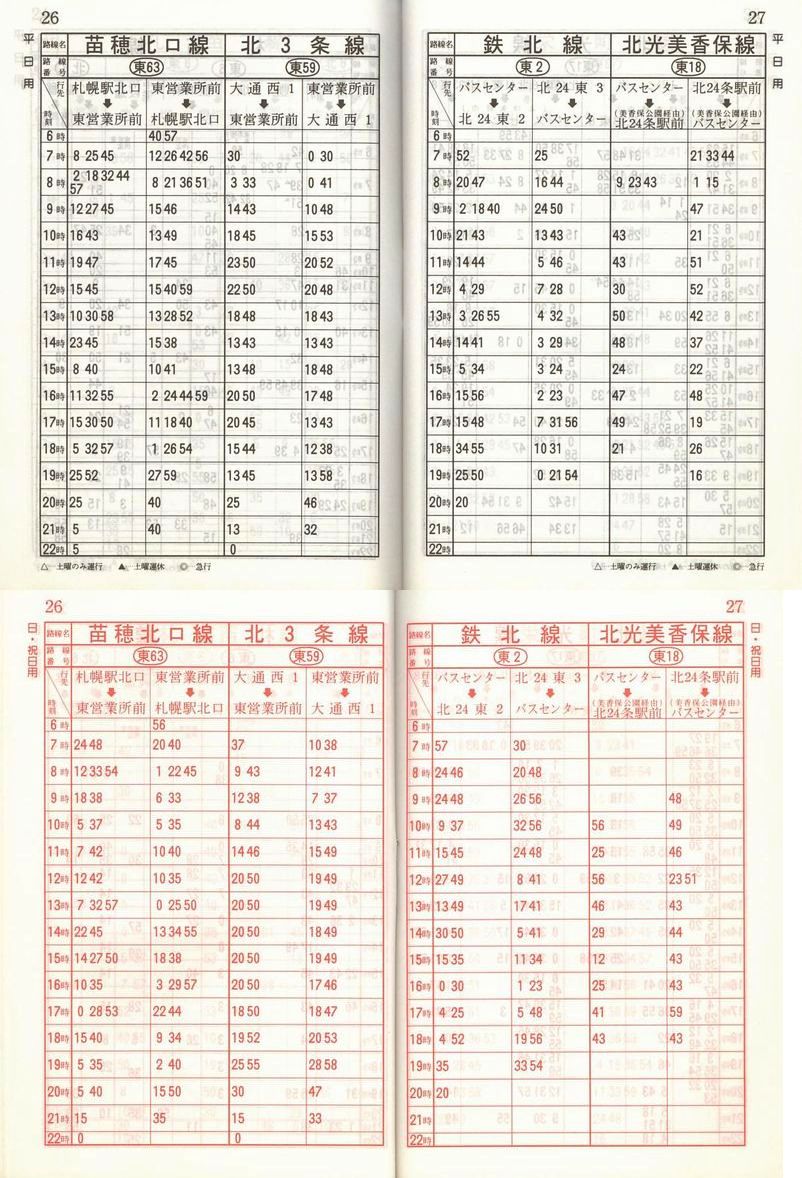 26
平日用
路線名 苗穂北口線 北3条線
路線番号 東63 東59
行先 札幌駅北口 東営業所前 大通西1 東営業所前
時刻 東営業所前 札幌駅北口 東営業所前 大通西1
6時 40 57
7時 8 25 45 12 26 42 56 30 0 30
8時 2 18 32 44 57 8 21 36 51 3 33 0 41
9時 12 27 45 15 46 14 43 10 48
10時 16 43 13 49 18 45 15 53
11時 19 47 17 45 23 50 20 52
12時 15 45 15 40 59 22 50 20 48
13時 10 30 58 13 28 52 18 48 18 43
14時 23 45 15 38 13 43 13 43
15時 8 40 10 41 13 48 18 48
16時 11 32 55 2 24 44 59 20 50 17 48
17時 15 30 50 11 18 40 20 45 13 43
18時 5 32 57 1 26 54 15 44 12 38
19時 25 52 27 59 13 45 13 58
20時 25 40 25 46
21時 5 40 13 32
22時 5 0
△ 土曜のみ運行 ▲ 土曜運休 ◎ 急行
27
平日用
路線名 鉄北線 北光美香保線
路線番号 東2 東18
行先 バスセンター 北24東3 バスセンター 北24条駅前
時刻 北24東2 バスセンター (美香保公園経由)北24条駅前 (美香保公園経由)バスセンター
6時
7時 52 25 21 33 44
8時 20 47 16 44 9 23 43 1 15
9時 2 18 40 24 50 47
10時 21 43 13 43 43 21
11時 14 44 5 46 43 51
12時 4 29 7 28 30 52
13時 3 26 55 4 32 50 42
14時 14 41 3 29 48 37
15時 5 34 3 24 24 22
16時 15 56 2 23 47 48
17時 15 48 7 31 56 49 19
18時 34 55 10 31 21 26
19時 25 50 0 21 54 16
20時 20
21時
22時
△ 土曜のみ運行 ▲ 土曜運休 ◎ 急行
26
日・祝日用
路線名 苗穂北口線 北3条線
路線番号 東63 東59
行先 札幌駅北口 東営業所前 大通西1 東営業所前
時刻 東営業所前 札幌駅北口 東営業所前 大通西1
6時 56
7時 24 48 20 40 37 10 38
8時 12 33 54 1 22 45 9 43 12 41
9時 18 38 6 33 12 38 7 37
10時 5 37 5 35 8 44 13 43
11時 7 42 10 40 14 46 15 49
12時 12 42 10 35 20 50 19 49
13時 7 32 57 0 25 50 20 50 19 49
14時 22 45 13 34 55 20 50 18 49
15時 14 27 50 18 38 20 50 19 49
16時 10 35 3 29 57 20 50 17 46
17時 0 28 53 22 44 18 50 18 47
18時 15 40 9 34 19 52 20 53
19時 5 35 2 40 25 55 28 58
20時 5 40 15 50 30 47
21時 15 35 15 33
22時 0 0
27
日・祝日用
路線名 鉄北線 北光美香保線
路線番号 東2 東18
行先 バスセンター 北24東3 バスセンター 北24条駅前
時刻 北24東2 バスセンター (美香保公園経由)北24条駅前 (美香保公園経由)バスセンター
6時
7時 57 30
8時 24 46 20 48
9時 24 48 26 56 48
10時 9 37 32 56 56 49
11時 15 45 24 48 25 46
12時 27 49 8 41 56 23 51
13時 13 49 17 41 46 43
14時 30 50 5 41 29 44
15時 15 35 11 34 12 43
16時 0 30 1 23 25 43
17時 4 25 5 48 41 59
18時 4 52 19 56 43 43
19時 35 33 54
20時 20
21時
22時